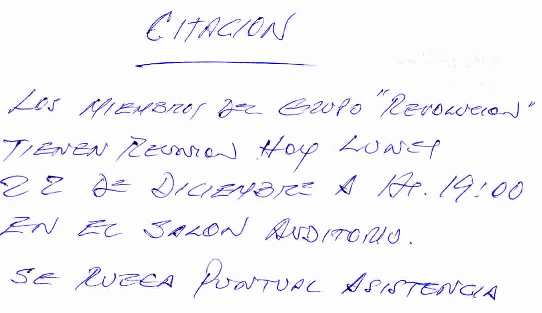 CITACION
LOS MIEMBROS DEL GRUPO "REVOLUCION"
TIENEN REUNION HOY LUNES
22 DE DICIEMBRE A Hr. 19:00
EN EL SALON AUDITORIO.
SE RUEGA PUNTUAL ASISTENCIA